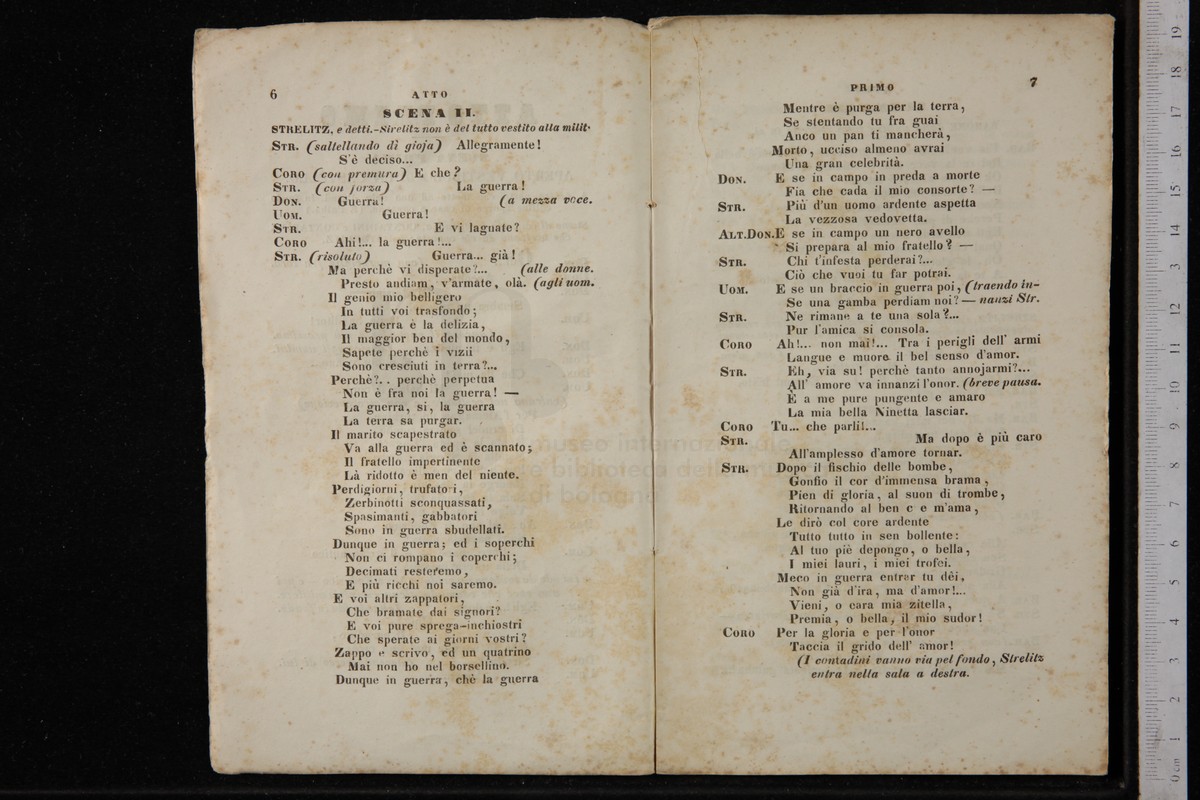 6 ATTO
SCENA II.
STRELITZ, e detti.-Strelitz non è del tutto vestito alla milit.
STR. (saltellando di gioja) Allegramente!
S'è deciso...
CORO (con premura) E che?
STR. (con forza) La guerra!
DON. Guerra! (a mezza voce.
UOM. Guerra!
STR. E vi lagnate?
CORO Ahi!... la guerra!...
STR. (risoluto) Guerra... già!
Ma perchè vi disperate?... (alle donne.
Presto andiam, v'armate, olà. (agli uom.
Il genio mio belligero
In tutti voi trasfondo;
La guerra è la delizia,
Il maggior ben del mondo,
Sapete perchè i vizii
Sono cresciuti in terra?...
Perchè?.. perchè perpetua
Non è fra noi la guerra! —
La guerra, si, la guerra
La terra sa purgar.
Il marito scapestrato
Va alla guerra ed è scannato;
Il fratello impertinente
Là ridotto è men del niente.
Perdigiorni, trufato i,
Zerbinotti sconquassati,
Spasimanti, gabbatori
Sono in guerra sbudellati.
Dunque in guerra; ed i soperchi
Non ci rompano i coperchi;
Decimati resteremo,
E più ricchi noi saremo.
E voi altri zappatori,
Che bramate dai signori?
E voi pure sprega-inchiostri
Che sperate ai giorni vostri?
Zappo e scrivo, ed un quatrino
Mai non ho nel borsellino.
Dunque in guerra, chè la guerra
PRIMO 7
Mentre è purga per la terra,
Se stentando tu fra guai
Anco un pan ti mancherà,
Morto, ucciso almeno avrai
Una gran celebrità.
DON. E se in campo in preda a morte
Fia che cada il mio consorte? —
STR. Più d'un uomo ardente aspetta
La vezzosa vedovetta.
ALT.DON. E se in campo un nero avello
Si prepara al mio fratello? —
STR. Chi t'infesta perderai?...
Ciò che vuoi tu far potrai.
UOM. E se un braccio in guerra poi, (traendo in-
Se una gamba perdiam noi? — nanzi Str.
STR. Ne rimane a te una sola?...
Pur l'amica si consola.
CORO Ah!... non mai!... Tra i perigli dell' armi
Langue e muore il bel senso d'amor.
STR. Eh, via su! perchè tanto annojarmi?...
All' amore va innanzi l'onor. (breve pausa.
E a me pure pungente e amaro
La mia bella Ninetta lasciar.
CORO Tu... che parli!...
STR. Ma dopo è più caro
All'amplesso d'amore tornar.
STR. Dopo il fischio delle bombe,
Gonfio il cor d'immensa brama,
Pien di gloria, al suon di trombe,
Ritornando al ben c e m'ama,
Le dirò col core ardente
Tutto tutto in sen bollente:
Al tuo piè depongo, o bella,
I miei lauri, i miei trofei.
Meco in guerra entrar tu dêi,
Non già d'ira, ma d'amor!...
Vieni, o cara mia zitella,
Premia, o bella, il mio sudor!
CORO Per la gloria e per l'onor
Taccia il grido dell' amor!
(I contadini vanno via pel fondo, Strelitz
entra nella sala a destra.
museo internazionale
e biblioteca della
di bologna
0 cm 1 2 3 4 5 6 7 8 9 10 11 12 13 14 15 16 17 18 19